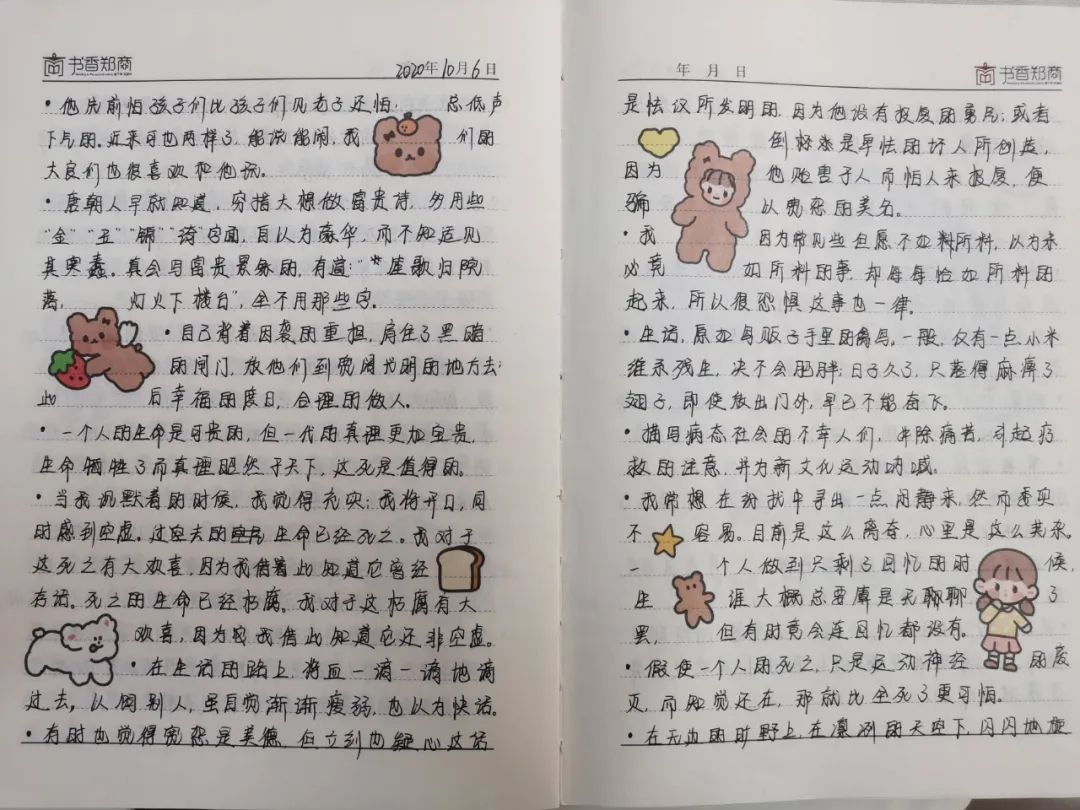 书香郑商
2020年10月6日
•他先前怕孩子们比孩子们见老子还怕, 总低声
下气的。近来可也两样了,能说能闹,我们的
大良们也很喜欢和他玩。
•唐朝人早就知道,穷措大想做富贵诗,多用些
“金”“玉”“锦”“绮”字面,自以为豪华,而不知适见
其寒蠢。真会写富贵景象的,有道:“笙歌归院
落, 灯火下楼台”,全不用那些字。
•自己背着因袭的重担,肩住了黑暗
的闸门,放他们到宽阔光明的地方去;
此后幸福的度日,合理的做人。
•一个人的生命是可贵的,但一代的真理更加宝贵,
生命牺牲了而真理昭然于天下,这死是值得的。
•当我沉默着的时候,我觉得充实;我将开口,同
时感到空虚。过空去的生命已经死亡。我对于
这死亡有大欢喜,因为我借此知道它曾经
存活。死亡的生命已经朽腐。我对于这朽腐有大
欢喜,因为我借此知道它还非空虚。
•在生活的路上,将血一滴一滴地滴
过去,以饲别人,虽自觉渐渐瘦弱,也以为快活。
•有时也觉得宽恕是美德,但立刻也疑心这话
年 月 日
书香郑商
是怯汉所发明的,因为他没有报复的勇气;或者
倒怀来是卑怯的坏人所创造,
因为他贻害于人而怕人来报复,便
骗以宽恕的美名。
•我因为常见些但愿不如料所料,以为未
必竟如所料的事,却每每恰如所料的
起来,所以很恐惧这事也一律。
•生活,原如鸟贩子手里的禽鸟,一般,仅有一点小米
维系残生,决不会肥胖;日子久了,只落得麻痹了
翅子,即使放出门外,早已不能奋飞。
•描写病态社会的不幸人们,解除痛苦,引起疗
救的注意,并为新文化运动呐喊。
•我常想在纷扰中寻出一点闲静来,然而委实
不容易。目前是这么离奇,心里是这么芜杂。
一个人做到只剩了回忆的时候,
生涯大概总要算是无聊聊了
罢,但有时竟会连回忆都没有。
•假使一个人的死亡,只是运动神经的废
页,而知觉还在,那就比全死了更可怕。
•在无边的旷野上,在凛冽的天空下,闪闪地旋